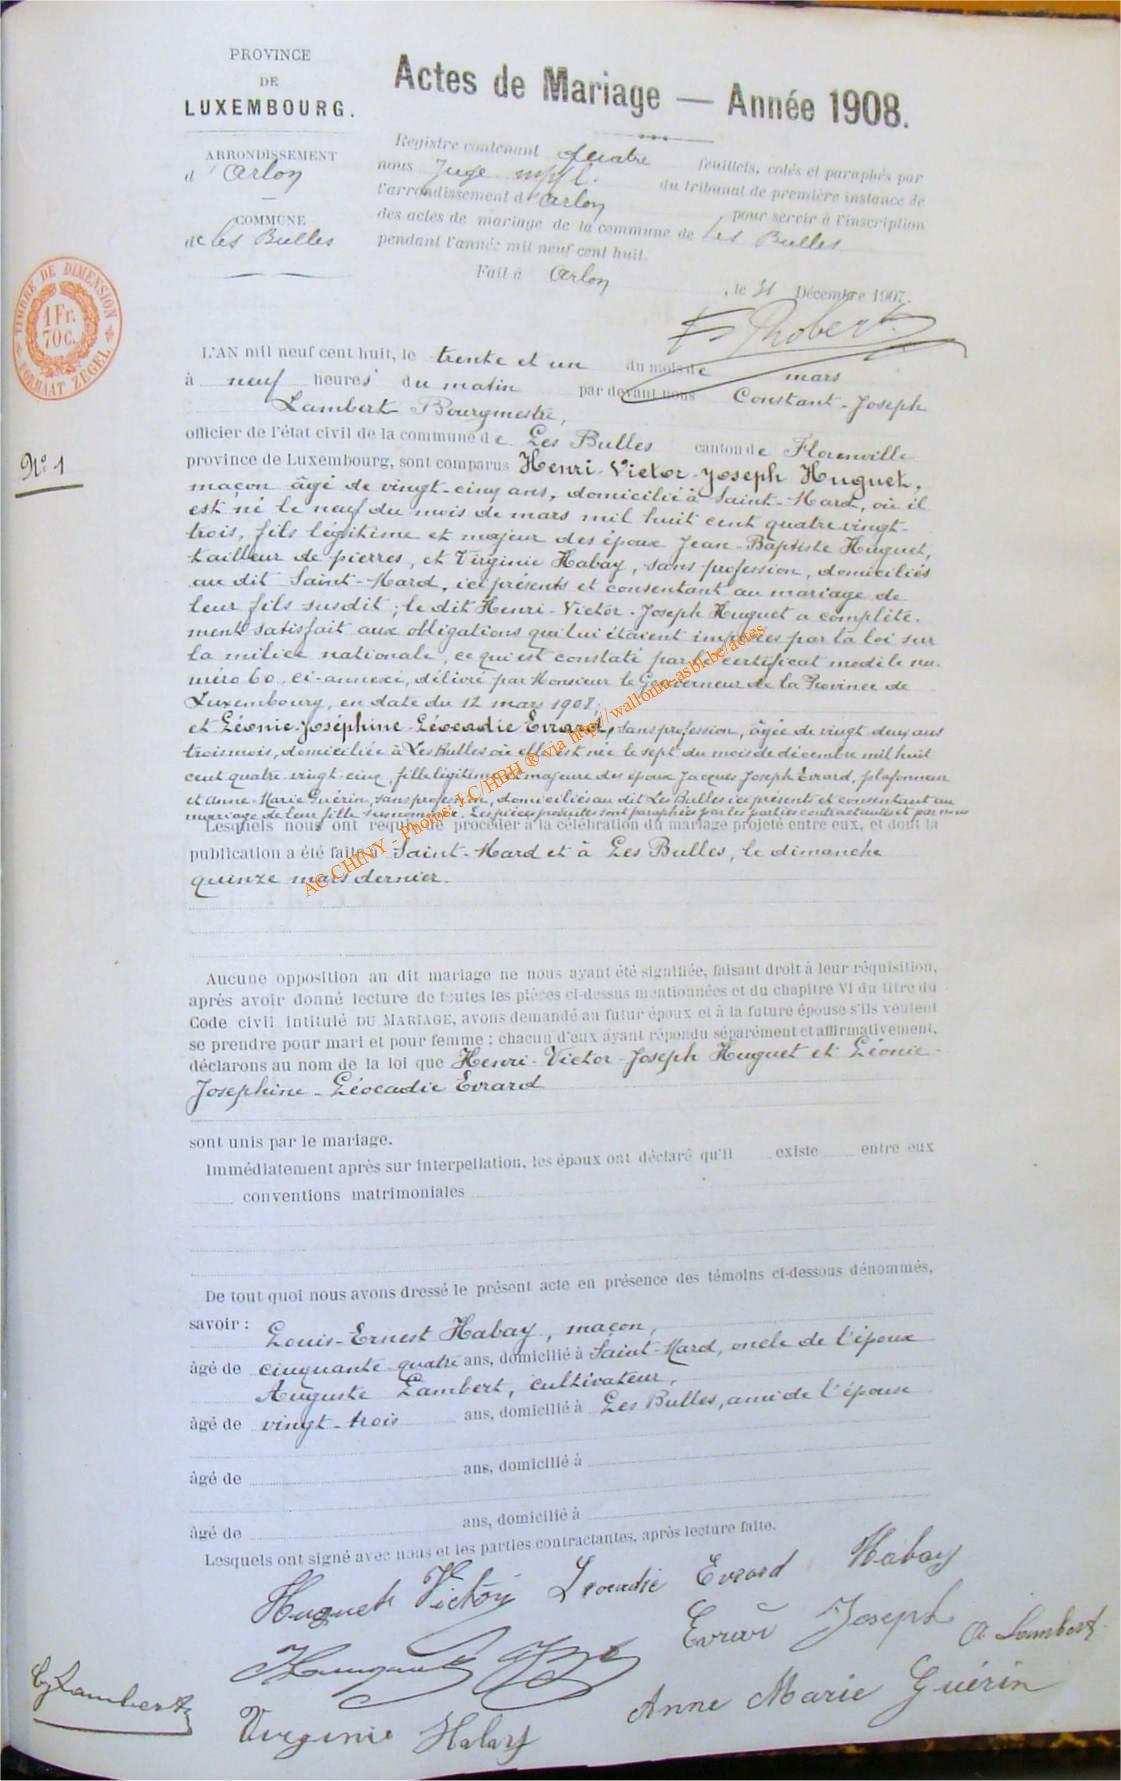 PROVINCE
DE
LUXEMBOURG.
ARRONDISSEMENT
d'Arlon
COMMUNE
de Les Bulles
Actes de Mariage — Année 1908.
Registre contenant quatre feuillets, cotés et paraphés par
nous Juge du tribunal de première instance de
l'arrondissement d'Arlon pour servir à l'inscription
des actes de mariage de la commune de Les Bulles
pendant l'année mil neuf cent huit.
Fait à Arlon, le 31 Décembre 1907.
TIMBRE DE DIMENSION
1 Fr.
70 c.
FORMAAT ZEGEL
N° 1
L'AN mil neuf cent huit, le trente et un du mois de mars
à neuf heures du matin par devant nous Constant-Joseph
Lambert Bourgmestre,
officier de l'état civil de la commune de Les Bulles canton de Florenville
province de Luxembourg, sont comparus Henri-Victor-Joseph Huguet,
maçon âgé de vingt-cinq ans, domicilié à Saint-Mard, où il
est né le neuf du mois de mars mil huit cent quatre vingt-
trois, fils légitime et majeur des époux Jean-Baptiste Huguet,
tailleur de pierres, et Virginie Habay, sans profession, domiciliés
au dit Saint-Mard, ici présents et consentant au mariage de
leur fils susdit; le dit Henri-Victor-Joseph Huguet a complète-
ment satisfait aux obligations qui lui étaient imposées par la loi sur
la milice nationale, ce qui est constaté par le certificat modèle nu-
méro 60, ci-annexé, délivré par Monsieur le Gouverneur de la Province de
Luxembourg, en date du 12 mars 1908;
et Léonie-Joséphine-Léocadie Evrard, sans profession, âgée de vingt deux ans
trois mois, domiciliée à Les Bulles où elle est née le sept du mois de décembre mil huit
cent quatre vingt-cinq, fille légitime et majeure des époux Jacques Joseph Evrard, plafonneur
et Anne-Marie Guérin, sans profession, domiciliés au dit Les Bulles ici présents et consentant au
mariage de leur fille susnommée. Les pièces produites sont paraphées par les parties contractantes et par nous
Lesquels nous ont requis de procéder à la célébration du mariage projeté entre eux, et dont la
publication a été faite à Saint-Mard et à Les Bulles, le dimanche
quinze mars dernier.
AC CHINY - Photos: J.C/HBH ® via http://wallonia-asbl.be/actes
Aucune opposition au dit mariage ne nous ayant été signifiée, faisant droit à leur réquisition,
après avoir donné lecture de toutes les pièces ci-dessus mentionnées et du chapitre VI du titre du
Code civil intitulé DU MARIAGE, avons demandé au futur époux et à la future épouse s'ils veulent
se prendre pour mari et pour femme; chacun d'eux ayant répondu séparément et affirmativement,
déclarons au nom de la loi que Henri-Victor-Joseph Huguet et Léonie-
Josephine-Léocadie Evrard
sont unis par le mariage.
Immédiatement après sur interpellation, les époux ont déclaré qu'il existe entre eux
conventions matrimoniales
De tout quoi nous avons dressé le présent acte en présence des témoins ci-dessous dénommés,
savoir: Louis-Ernest Habay, maçon,
âgé de cinquante-quatre ans, domicilié à Saint-Mard, oncle de l'époux
Auguste Lambert, cultivateur,
âgé de vingt-trois ans, domicilié à Les Bulles, ami de l'épouse
âgé de ans, domicilié à
âgé de ans, domicilié à
Lesquels ont signé avec nous et les parties contractantes, après lecture faite.
Huguet Victor Léocadie Evrard Habay
Evrard Joseph A Lambert
CJ Lambert
Virginie Habay Anne Marie Guérin